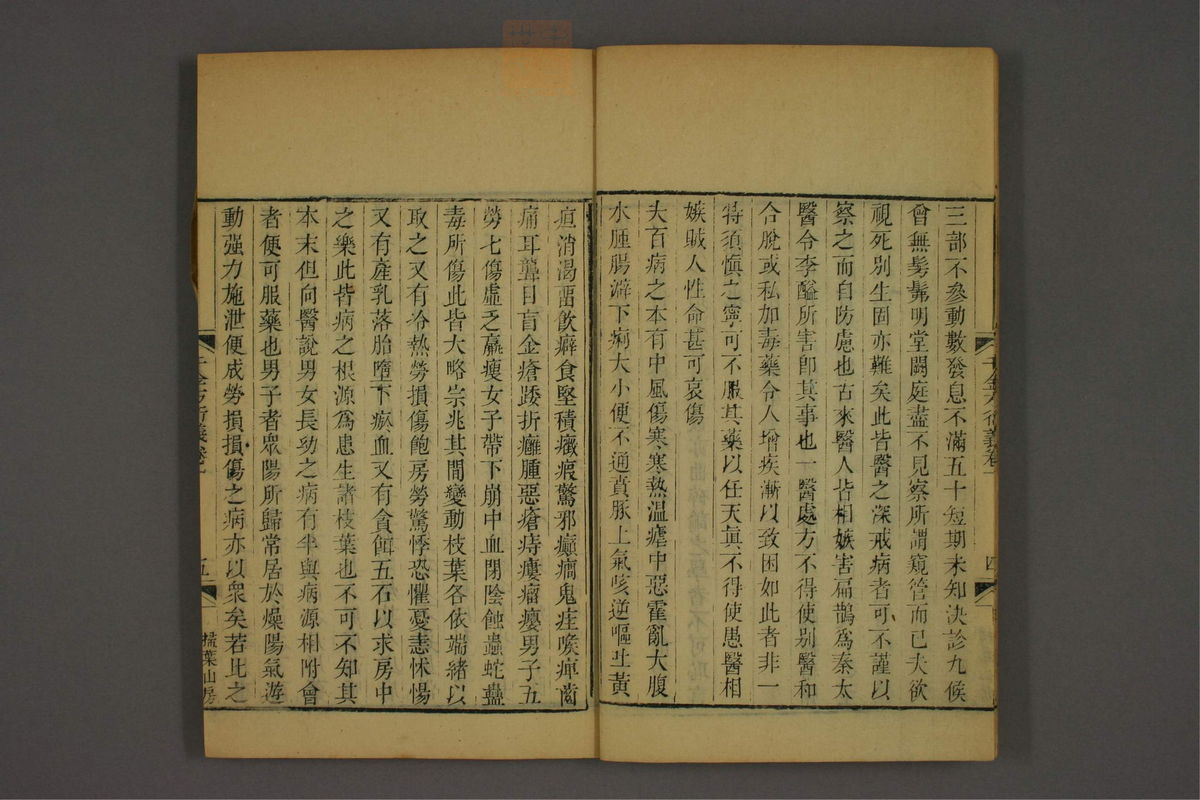 三部不參動數發息不滿五十短期未知決診九候
曾無髣髴明堂闕庭盡不見察所謂窺管而已夫欲
視死別生固亦難矣此皆醫之深戒病者可不謹以
察之而自防慮也古來醫人皆相嫉害扁鵲為秦太
醫令李醯所害卽其事也一醫處方不得使別醫和
合脫或私加毒藥令人增疾漸以致困如此者非一
特須愼之寧可不服其藥以任天眞不得使愚醫相
嫉賊人性命甚可哀傷
夫百病之本有中風傷寒寒熱溫瘧中惡霍亂大腹
水腫腸澼下痢大小便不通賁豚上氣咳逆嘔吐黃
疸消渴畱飲癖食堅積癥瘕驚邪癲癇鬼疰喉痺齒
痛耳聾目盲金瘡踒折癰腫惡瘡痔瘻瘤癭男子五
勞七傷虛乏羸瘦女子帶下崩中血閉陰蝕蟲蛇蠱
毒所傷此皆大略宗兆其間變動枝葉各依端緒以
取之又有冷熱勞損傷飽房勞驚悸恐懼憂恚怵惕
又有產乳落胎墮下瘀血又有貪餌五石以求房中
之樂此皆病之根源為患生諸枝葉也不可不知其
本末但向醫說男女長幼之病有半與病源相附會
者便可服藥也男子者眾陽所歸常居於燥陽氣遊
動强力施泄便成勞損損傷之病亦以眾矣若比之
千金方衍義卷一
四
千金方衍義卷一
五
掃葉山房